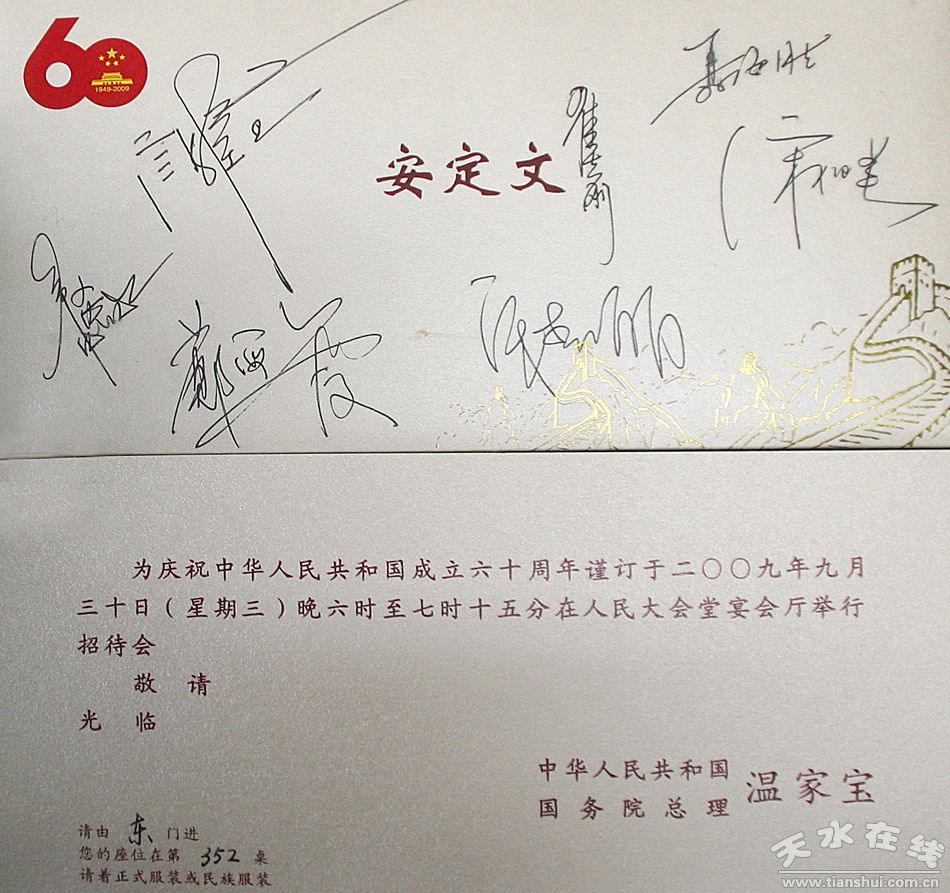 60
1949-2009
安定文
为庆祝中华人民共和国成立六十周年谨订于二〇〇九年九月
三十日（星期三）晚六时至七时十五分在人民大会堂宴会厅举行
招待会
敬 请
光 临
中华人民共和国
国务院总理 温家宝
请由 东 门进
您的座位在第 352 桌
请着正式服装或民族服装
天水在线
www.tianshui.com.cn